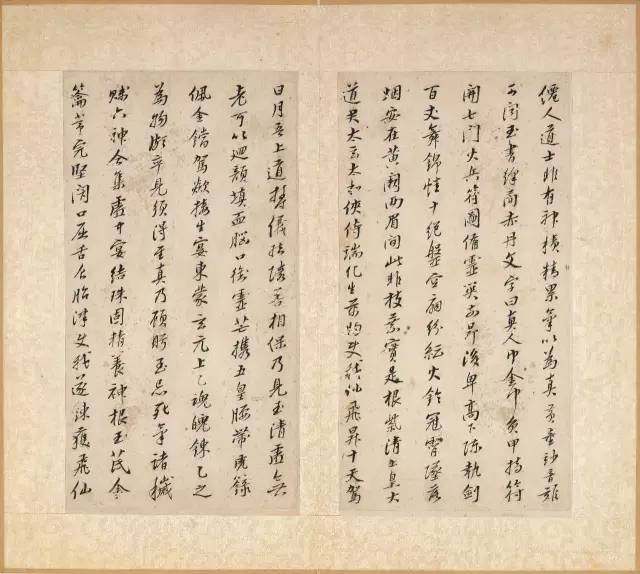 僊人道士非有神積精累氣以為真黃童妙音難
可聞玉書絳簡赤丹文字曰真人巾金巾負甲持符
開七門火兵符圖備靈關前昂後卑高下陳執劍
百丈舞錦幡十絕盤空扇紛紜火鈴冠霄隊落
烟安在黃闕兩眉間此非枝葉實是根紫清上皇大
道君太玄太和俠侍端化生萬物使我仙飛昇十天駕
日月吾上道鬱儀結璘善相保乃見玉清虛無
老可以迴顏填血腦口銜靈芒攜五皇腰帶虎籙
佩金璫駕歘接生宴東蒙玄元上乙魂魄鍊乙之
為物頗卒見須得至真乃顧眄至忌死氣諸穢
賤六神合集虛中宴結珠固精養神根玉茋金
籥常完堅閉口屈舌食胎津使我遂鍊獲飛仙